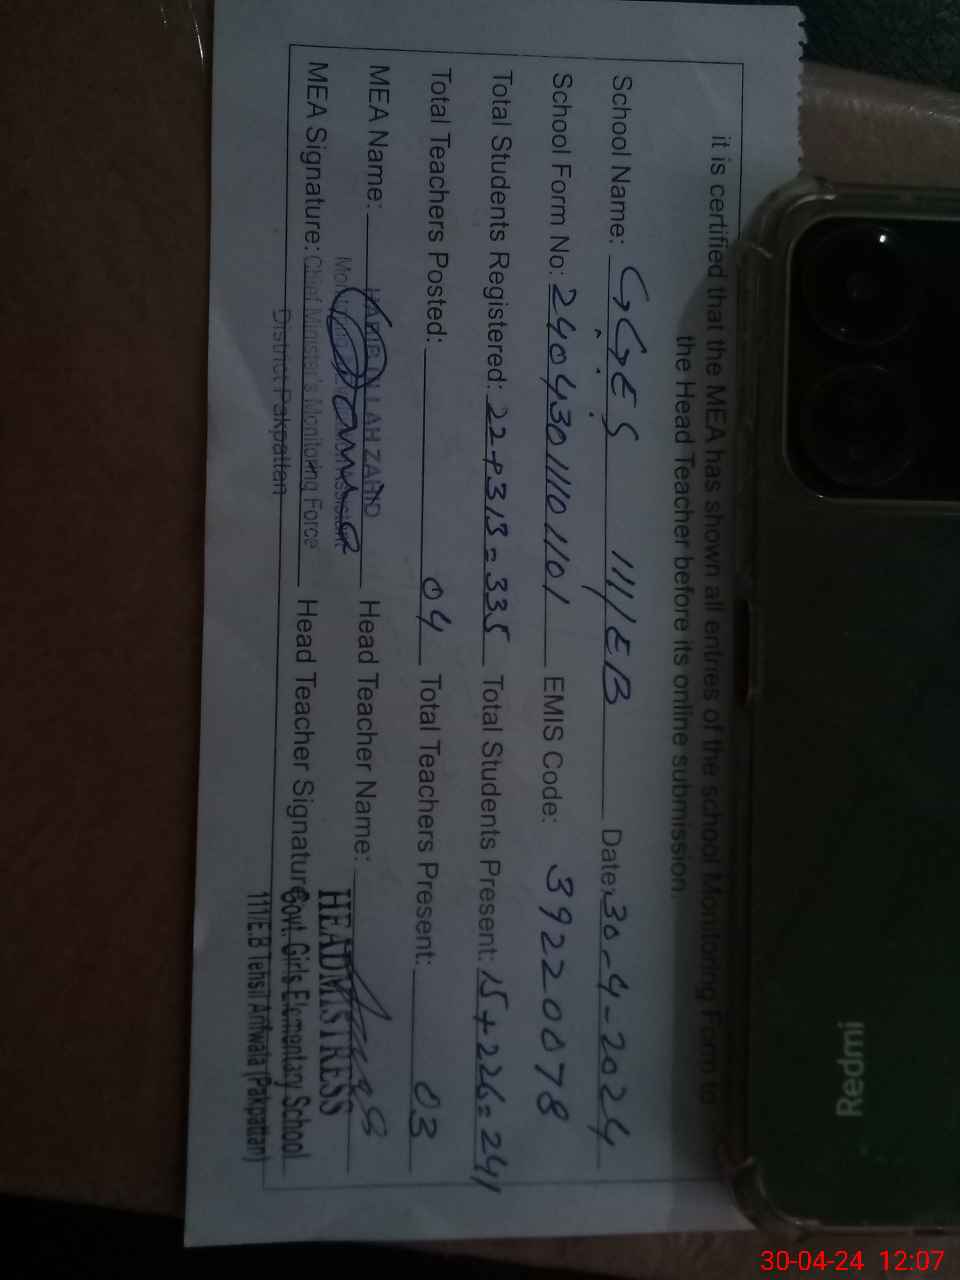 it is certified that the MEA has shown all entries of the school Monitoring Form to
the Head Teacher before its online submission.
School Name: G.G.E.S 111/EB Date: 30-4-2024
School Form No: 24043011101101 EMIS Code: 39220078
Total Students Registered: 22+313=335 Total Students Present: 15+226=241
Total Teachers Posted: 04 Total Teachers Present: 03
MEA Name: LAH ZAHID Head Teacher Name:
HEADMISTRESS
MEA Signature: Chief Minister's Monitoring Force Head Teacher Signature
Govt. Girls Elementary School
District Pakpattan
111/E.B Tehsil Arifwala (Pakpattan)
Redmi
30-04-24 12:07